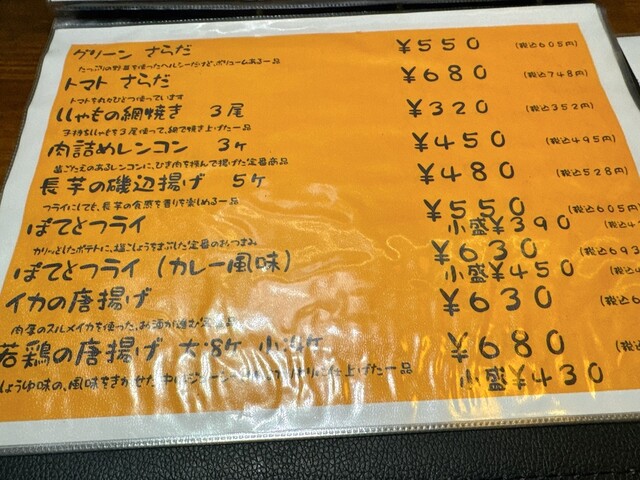 グリーン さらだ ¥550 (税込605円)
たっぷりの野菜を使ったヘルシーだけど、ボリュームある一品
トマト さらだ ¥680 (税込748円)
トマトを丸々ひとつ使っています
ししゃもの網焼き 3尾 ¥320 (税込352円)
子持ちししゃもを3尾使って、網で焼き上げた一品
肉詰めレンコン 3ヶ ¥450 (税込495円)
歯ごたえのあるレンコンに、ひき肉を挟んで揚げた定番商品
長芋の磯辺揚げ 5ヶ ¥480 (税込528円)
フライにしても、長芋の食感を香りを楽しめる一品
ぽてとフライ ¥550 (税込605円)
小盛¥390 (税込4
カリッとしたポテトに、塩こしょうをまぶした定番のおつまみ
ぽてとフライ (カレー風味) ¥630 (税込693
小盛¥450 (税込4
イカの唐揚げ ¥630 (税込6
肉厚のスルメイカを使った、お酒が進む
若鶏の唐揚げ 大:8ヶ 小:4ヶ ¥680 (税込
しょうゆ味の、風味をきかせた 中はジューシー に仕上げた一品
小盛¥430 (税込